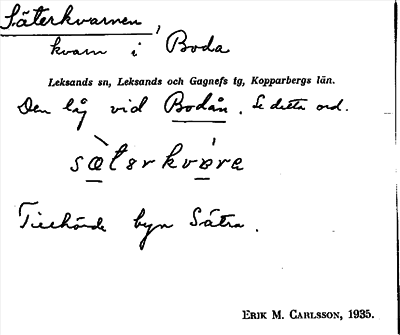 Säterkvarnen,
kvarn i Boda
Leksands sn, Leksands och Gagnefs tg, Kopparbergs län.
Den låg vid Bodån. Se detta ord.
Tillhörde byn Sätra.
ERIK M. CARLSSON, 1935.